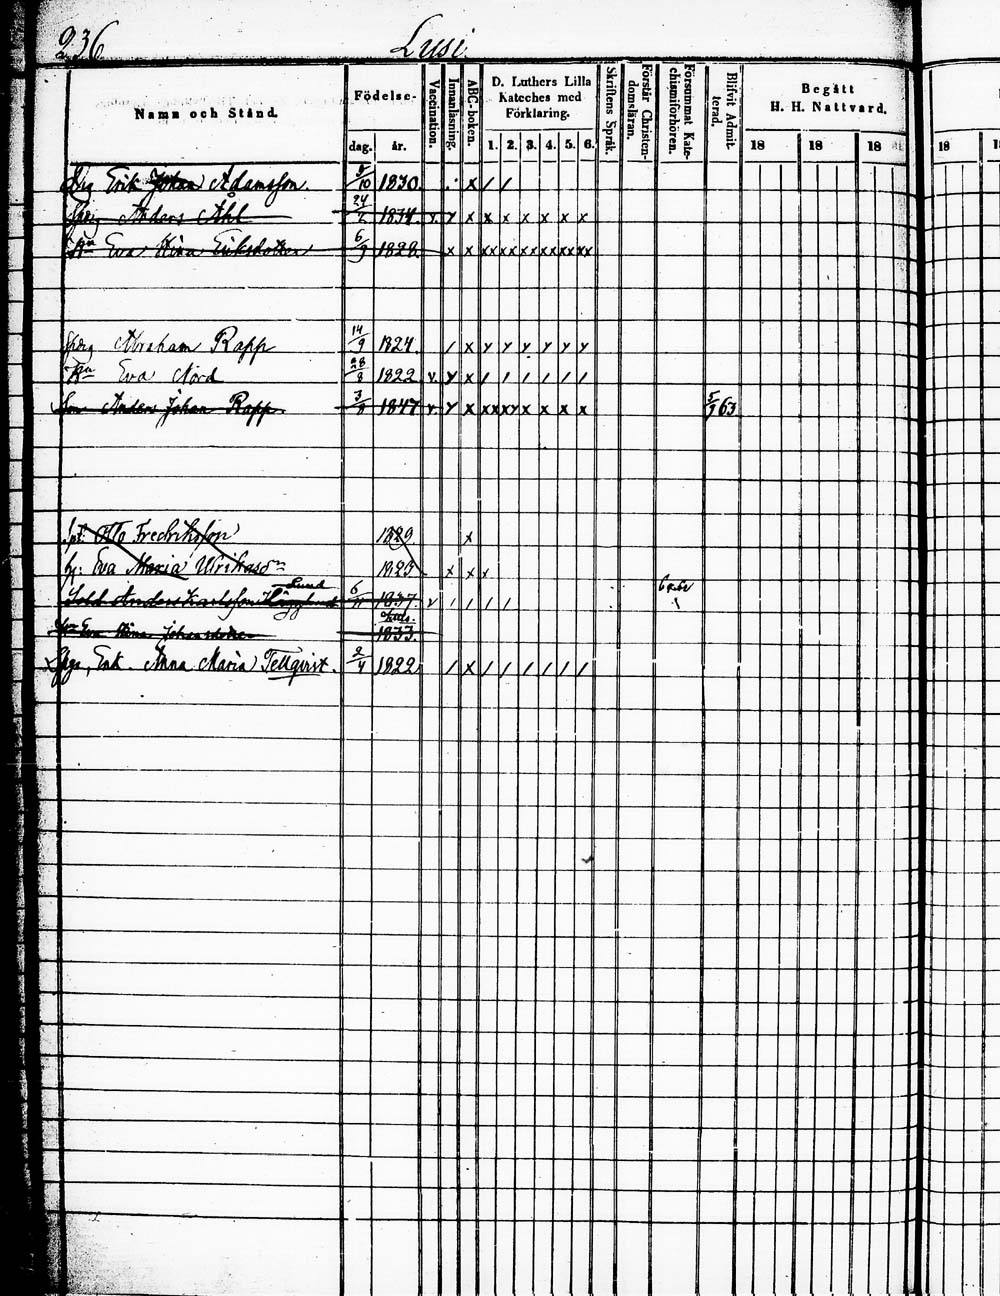 236 Lusi
Namn och Stånd.
Födelse-
dag. år.
Vaccination.
Innanläsning.
ABC-boken.
D. Luthers Lilla
Kateches med
Förklaring.
1. 2. 3. 4. 5. 6.
Skriftens Språk.
Förstår Christen-
domsläran.
Försummat Kate-
chismiförhören.
Blifvit Admit-
terad.
Begått
H. H. Nattvard.
18 18 18 18
Erik Johan Adamsson. 5/10 1830. x / /
Anders Ahl 24/2 v. x x x x x x x
Eva Stina Eriksdotter 6/9 1828. x x xx xx xx xx xx xx
Abraham Rapp 14/9 1824. / x y y y y y y
Eva Nord 28/8 1822 v. y x / / / / / /
Son Anders Johan Rapp. 3/8 1847 v y x xx xy x x x x 5/9 63
Otto Fredriksson 1829 x
Eva Maria Ulrikasdr 1825 x x x
Lund
Sold Anders Karlsson Hägglund 6/11 1837. v / / / /
Eva Stina Johansdotter 1833.
Enk. Anna Maria Tellqvist. 2/4 1822 / x / / / / / /